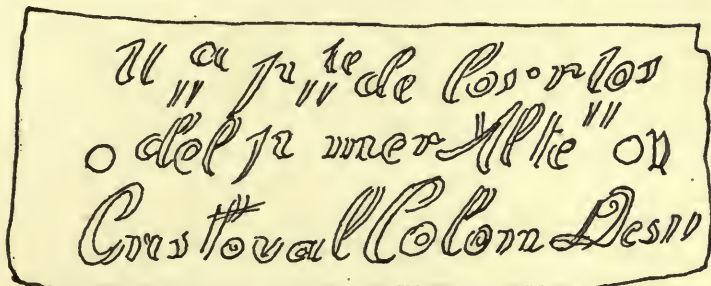 U,,a p,,te de los·r tos
del p imer Alte" D
Cristoval Colon Des